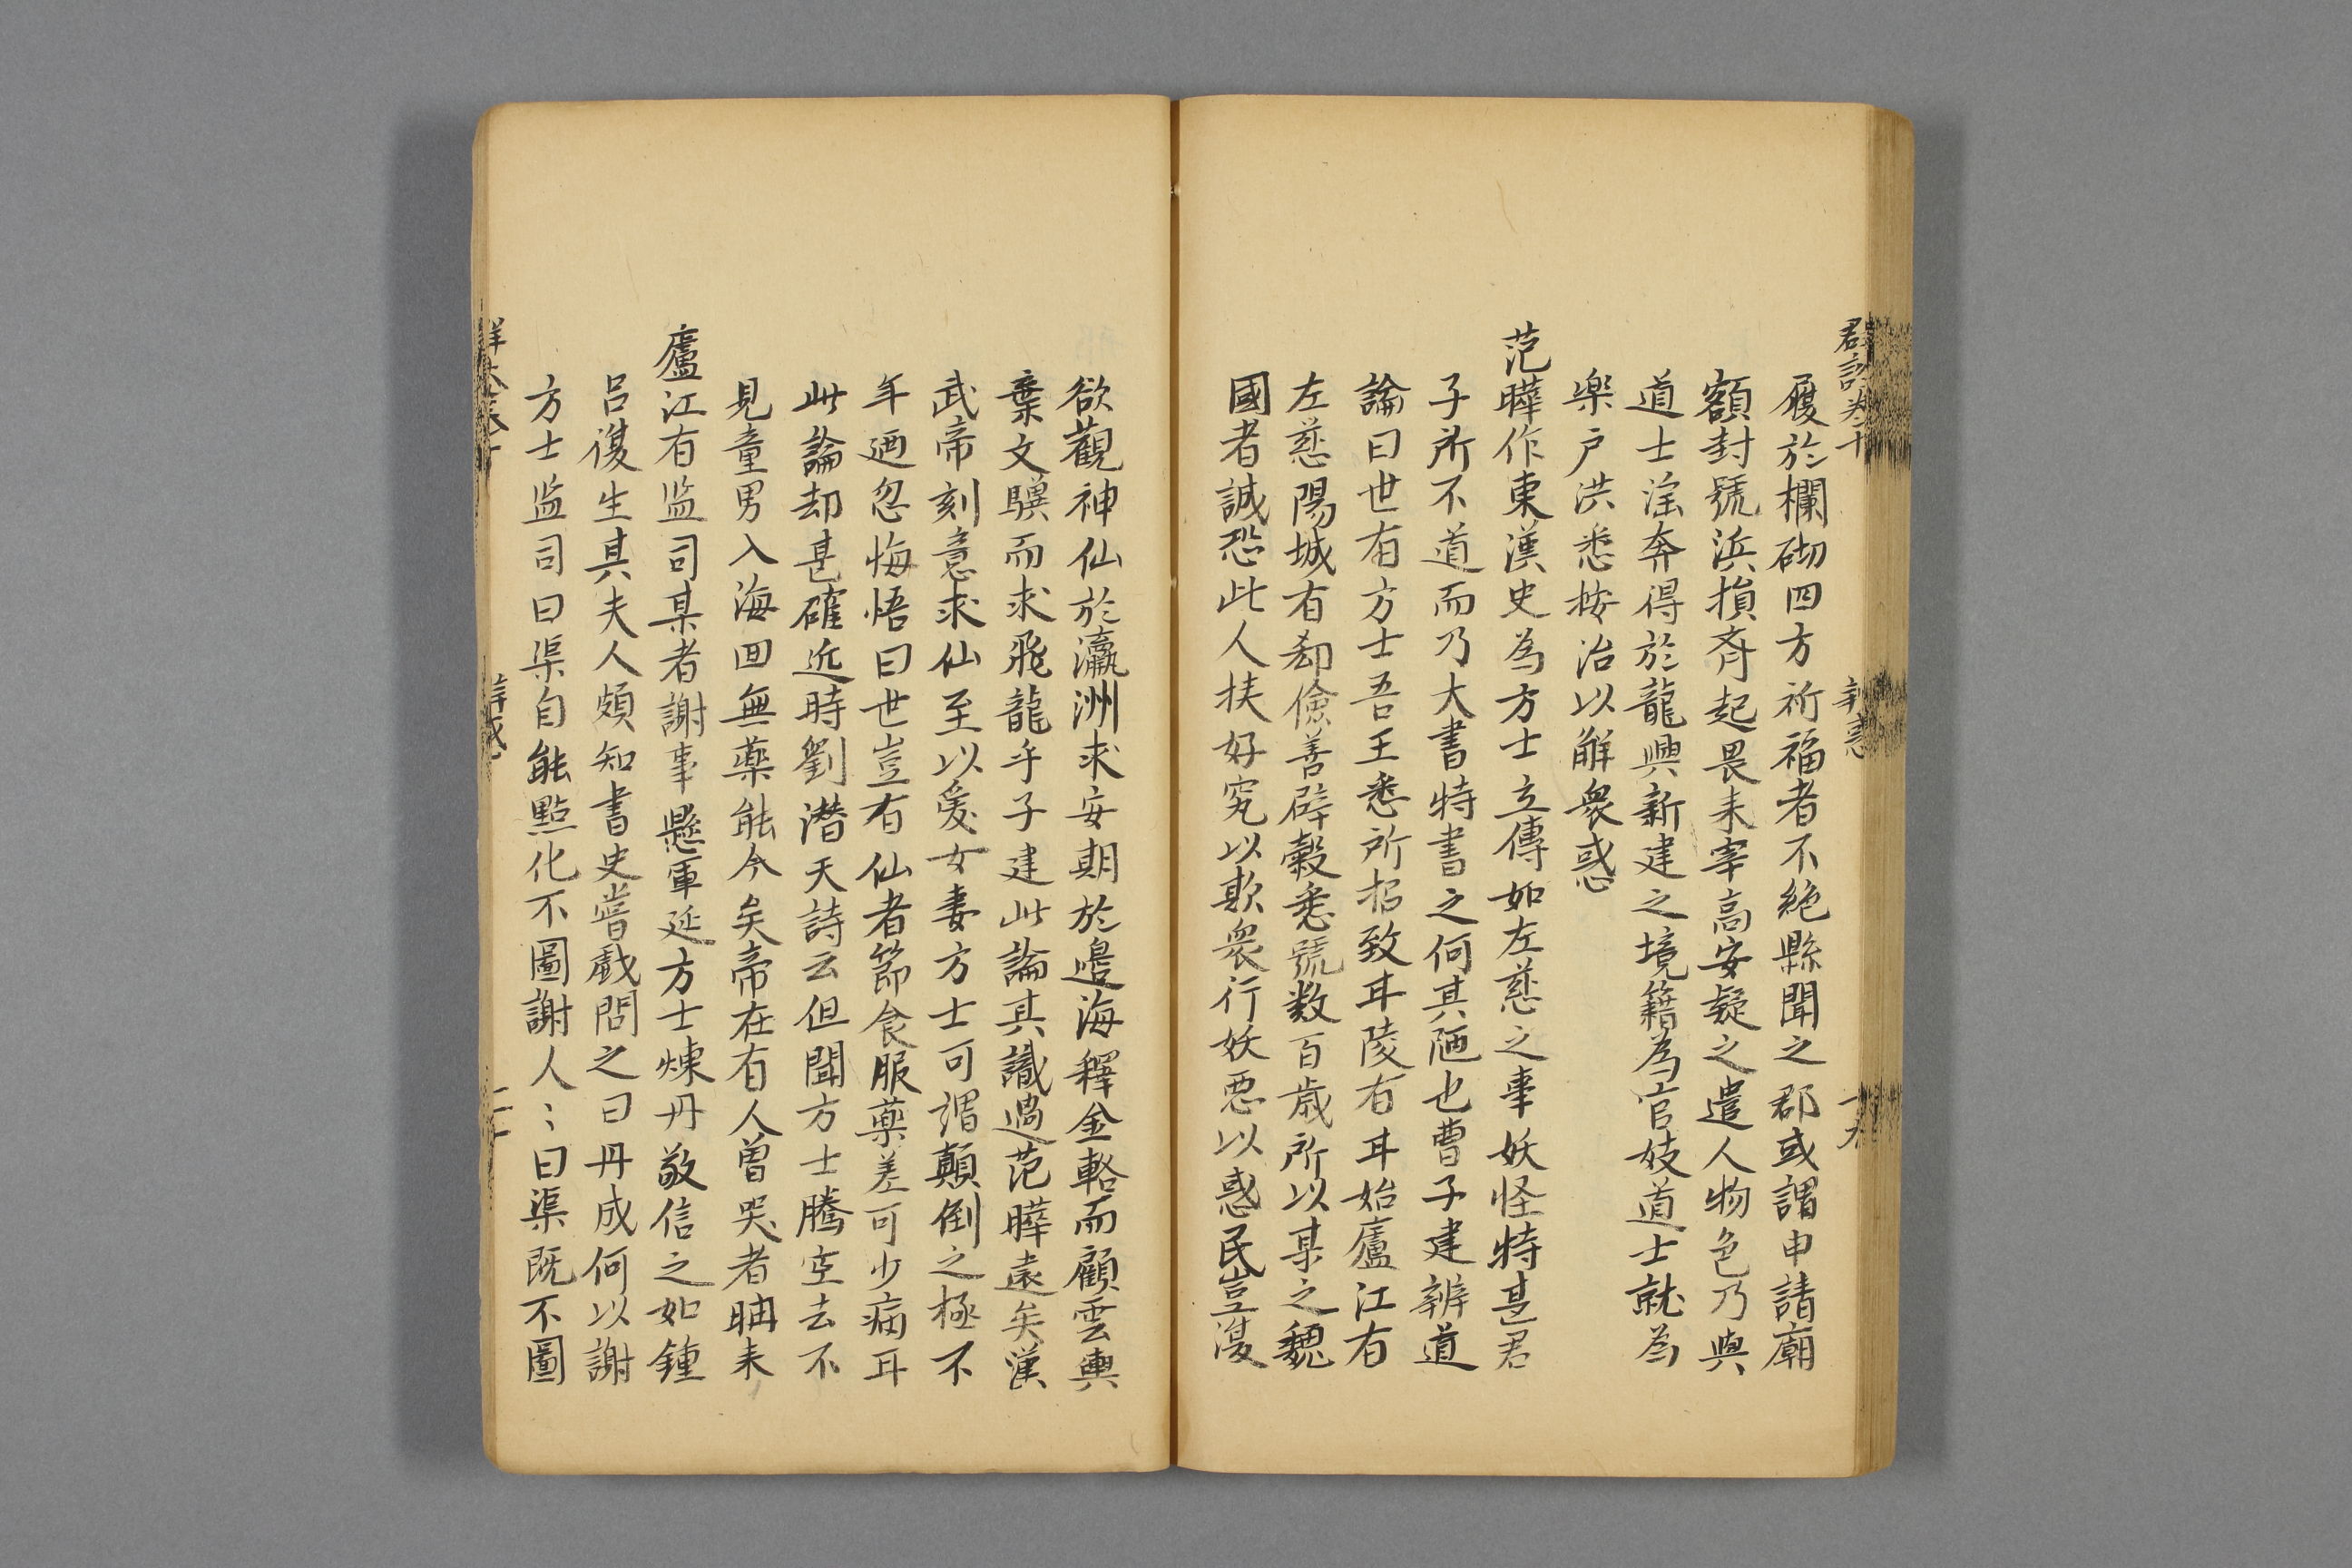 履於欄砌四方祈福者不絶縣聞之郡或謂申請廟
額封號浜損齊起畏未宰高安疑之遣人物色乃與
道士淫奔得於龍興新建之境籍為官妓道士就為
樂戶洪悉按治以解衆惑
范曄作東漢史為方士立傳如左慈之事妖怪特甚君
子所不道而乃大書特書之何其陋也曹子建辨道
論曰世有方士吾王悉所招致耳陵有耳始廬江有
左慈陽城有郄儉善辟穀悉號数百歲所以某之魏
國者誠恐此人挟好究以欺衆行妖惡以惑民豈復
欲觀神仙於瀛洲求安期於邊海釋金輅而顧雲輿
棄文驥而求飛龍乎子建此論其識過范曄遠矣漢
武帝刻意求仙至以愛女妻方士可謂顛倒之極不
年迺忽悔悟曰世豈有仙者節食服藥差可少病耳
此論却甚確近時劉潛天詩云但聞方士騰空去不
見童男入海回無藥能今矣帝在有人曽哭者聃未
廬江有监司某者謝事懸車延方士煉丹敬信之如鍾
呂復生其夫人頗知書史嘗戲問之曰丹成何以謝
方士监司曰渠自能點化不圖謝人〻曰渠既不圖